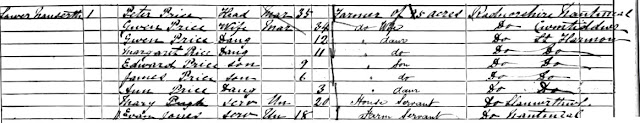 Lower Nanserth 1 Peter Price Head Mar 35 Farmer of 25 acres Radnorshire Nantmeal
Gwen Price Wife Mar 34 do Wife Do
Gwen Price Daug 12 " daur Do St Harmon
Margaret Price Daug 11 " do Do Do
Edward Price son 9 " son Do Do
James Price son 6 " do Do Do
Ann Price Daug 3 " daur Do Do
Mary Pugh serv Un 20 House Servant Do
Evan Jones serv Un 18 Farm Servant Do Nantmeal